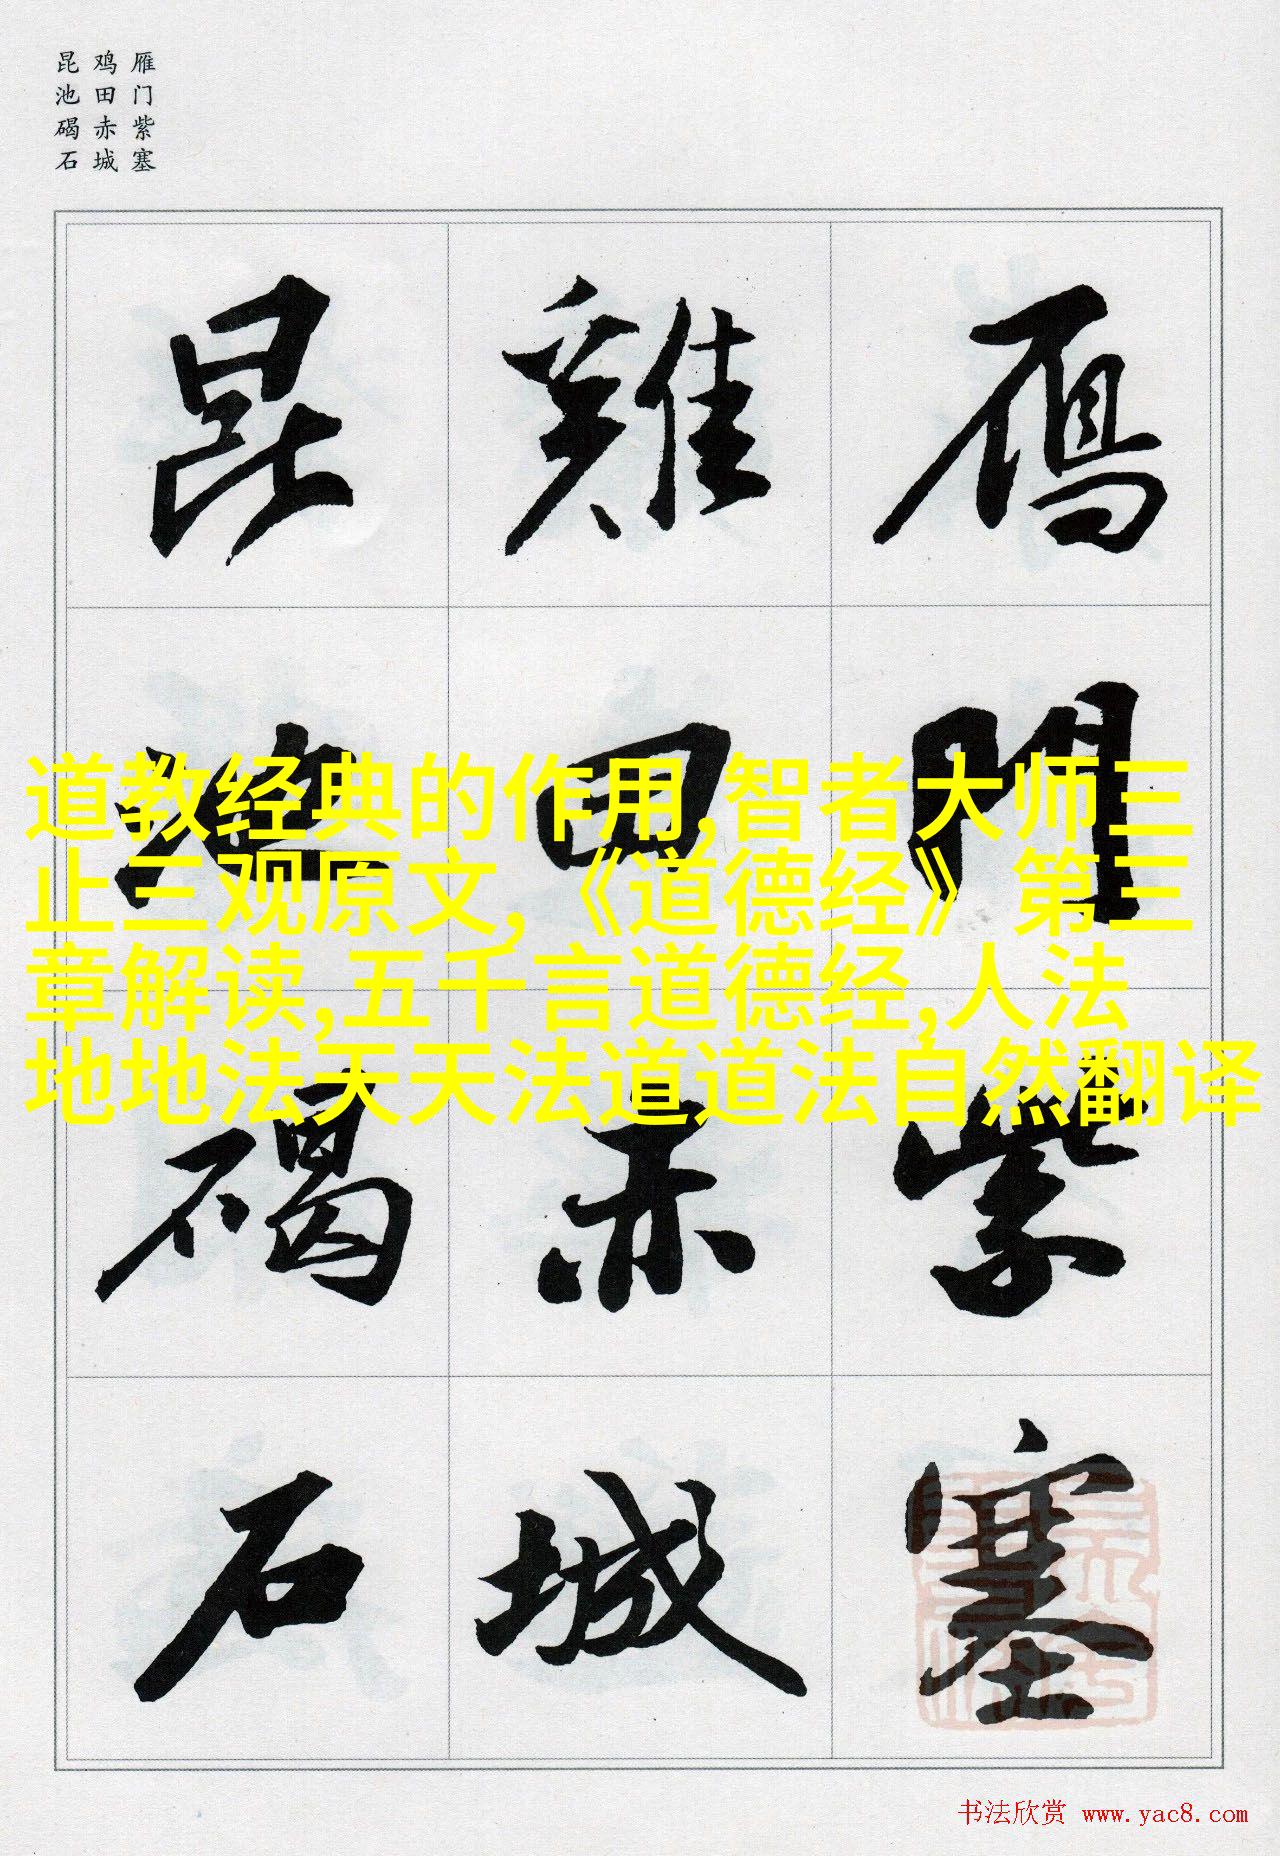 雁门紫塞
鸡田赤城
昆池碣石
鴈門紫塞
雞田赤城
昆池碣石
道教经典的作用,智者大师三
止三观原文,《道德经》第三
章解读,五千言道德经,人法
地地法天天法道道法自然翻译
书法欣赏 www.yac8.com